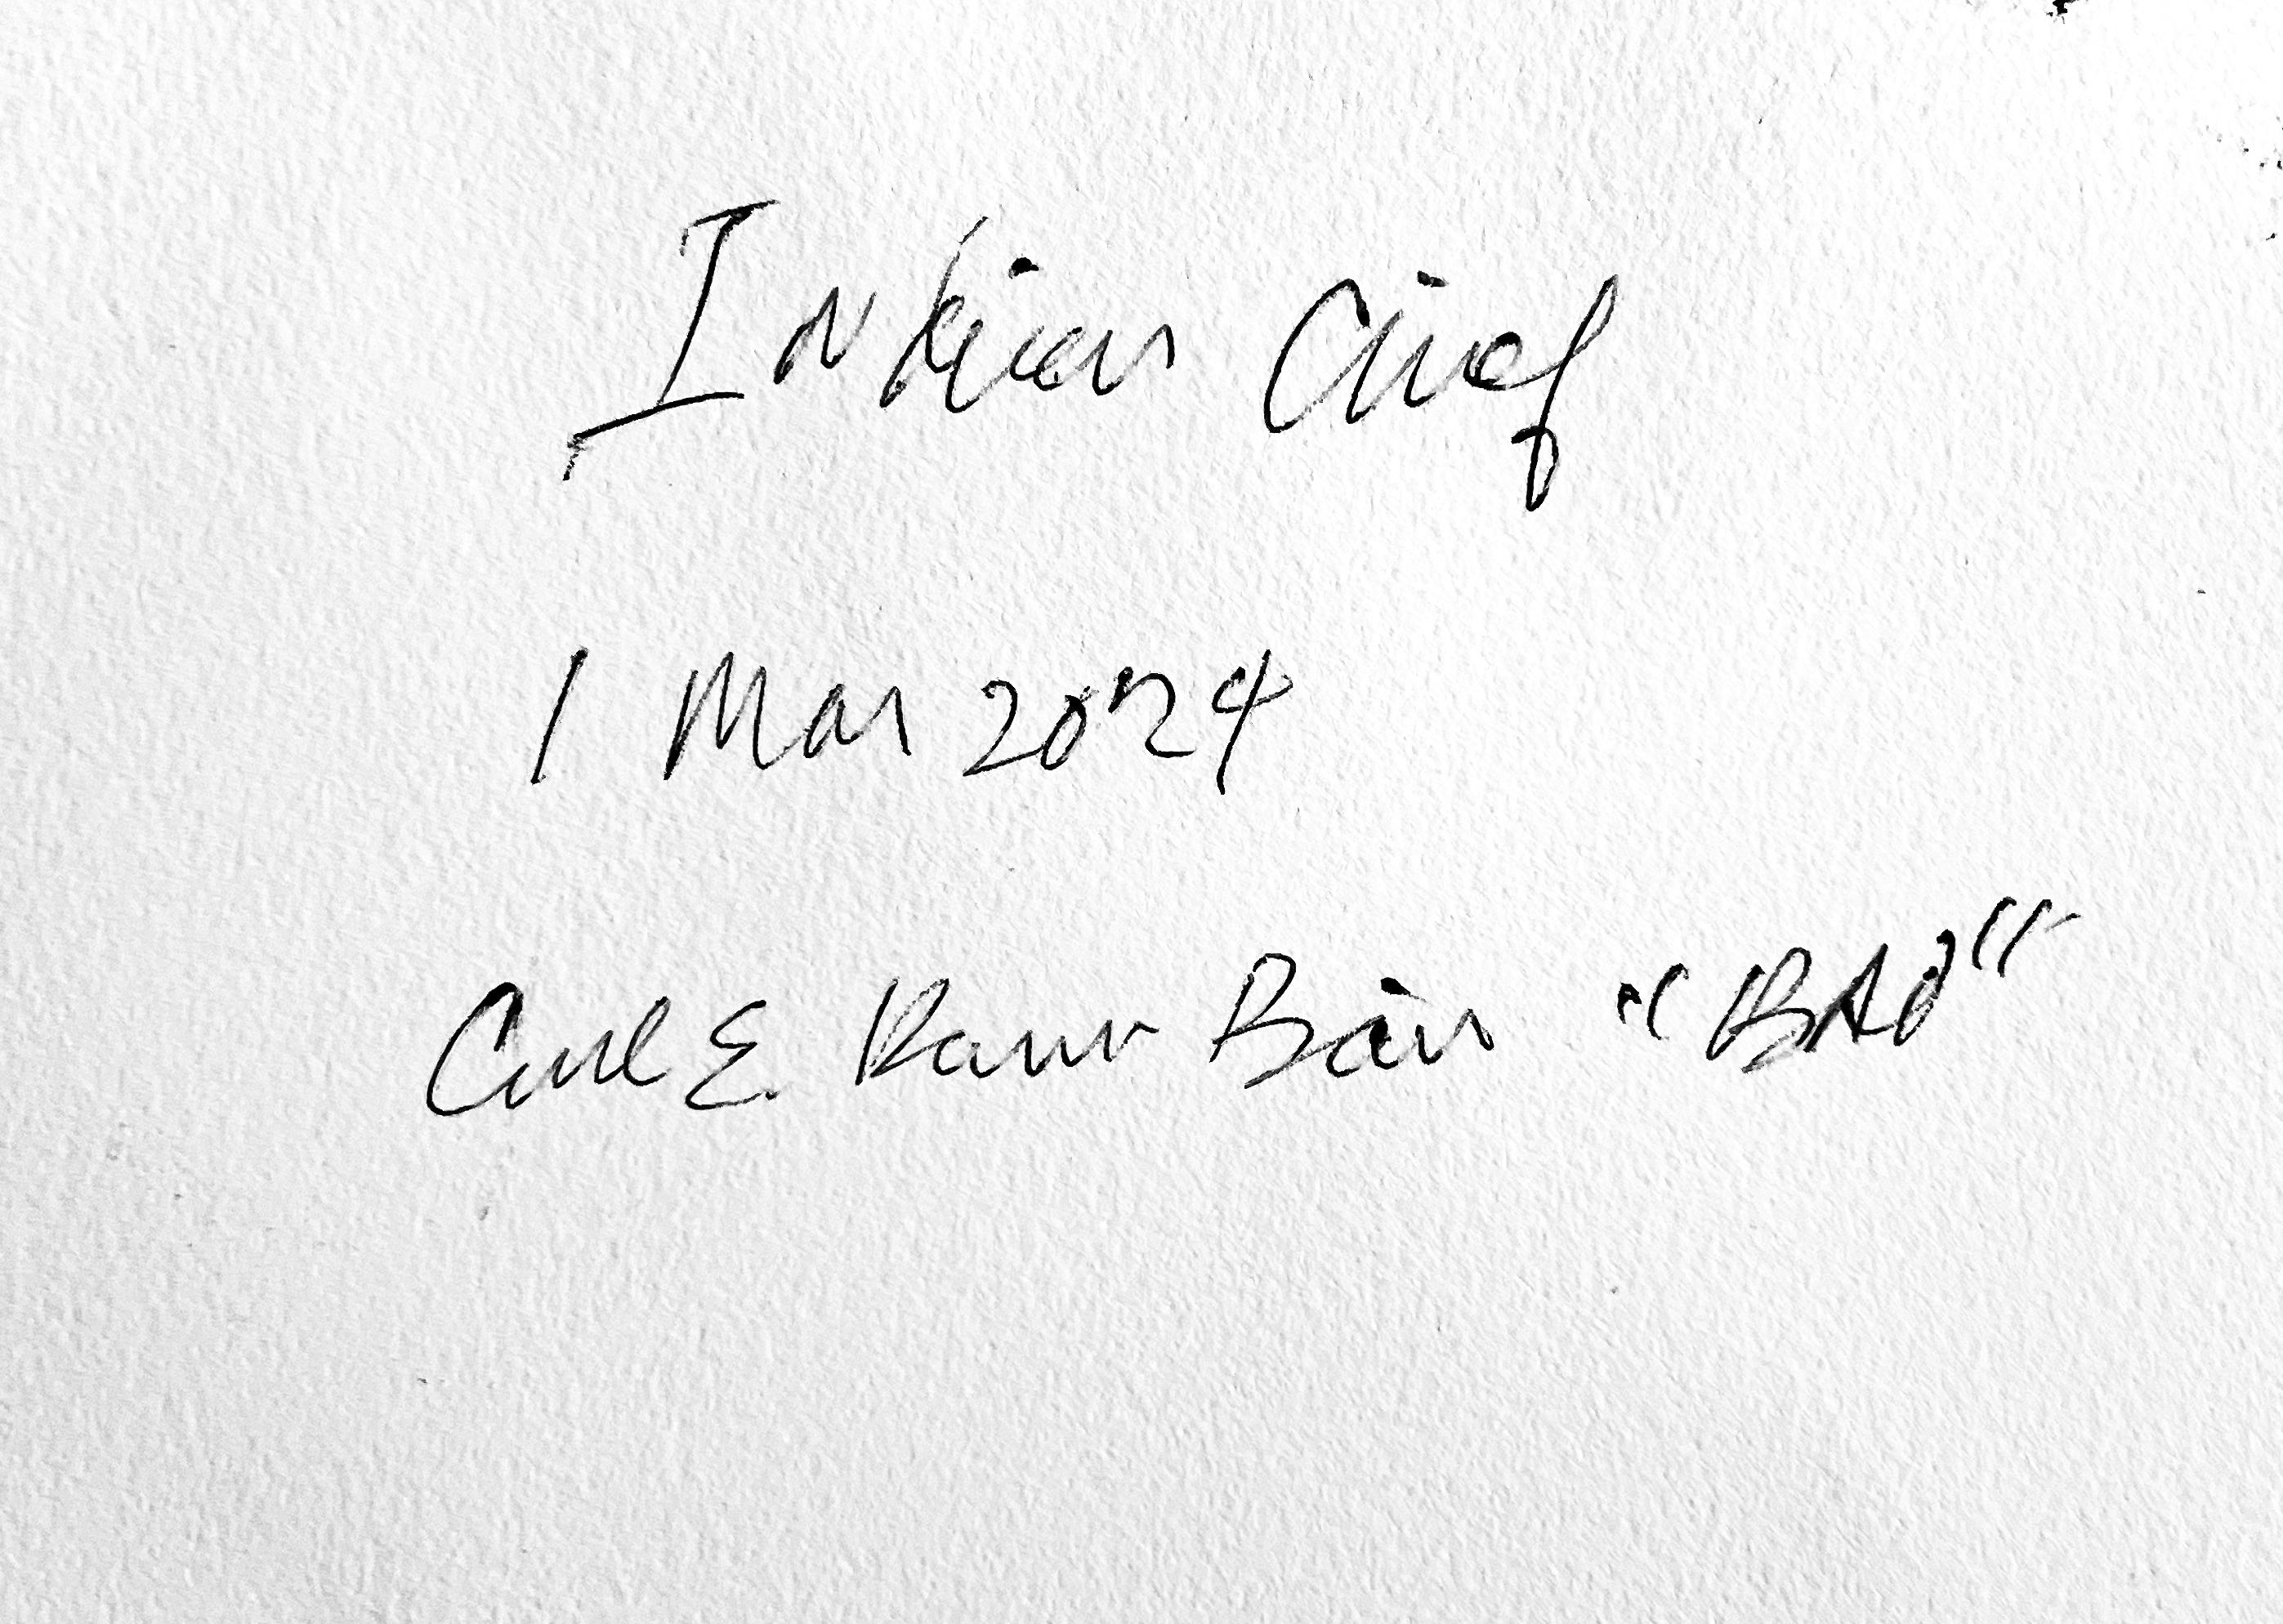 Indian Chief
1 Mar 2024
Carl E. Bain "BAD"